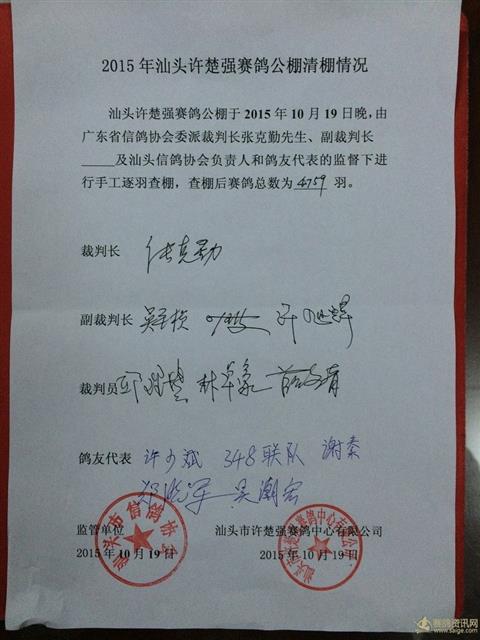 2015年汕头许楚强赛鸽公棚清棚情况
汕头许楚强赛鸽公棚于2015年10月19日晚，由
广东省信鸽协会委派裁判长张克勤先生、副裁判长
______及汕头信鸽协会负责人和鸽友代表的监督下进
行手工逐羽查棚，查棚后赛鸽总数为 4759 羽。
裁判长 张克勤
副裁判长
裁判员
鸽友代表 许少斌 348联队 谢秦
郑晓军 吴潮宏
监管单位 汕头市许楚强赛鸽中心有限公司
2015年10月19日 2015年10月19日
汕头市信鸽协会
赛鸽资讯网
www.saige.com